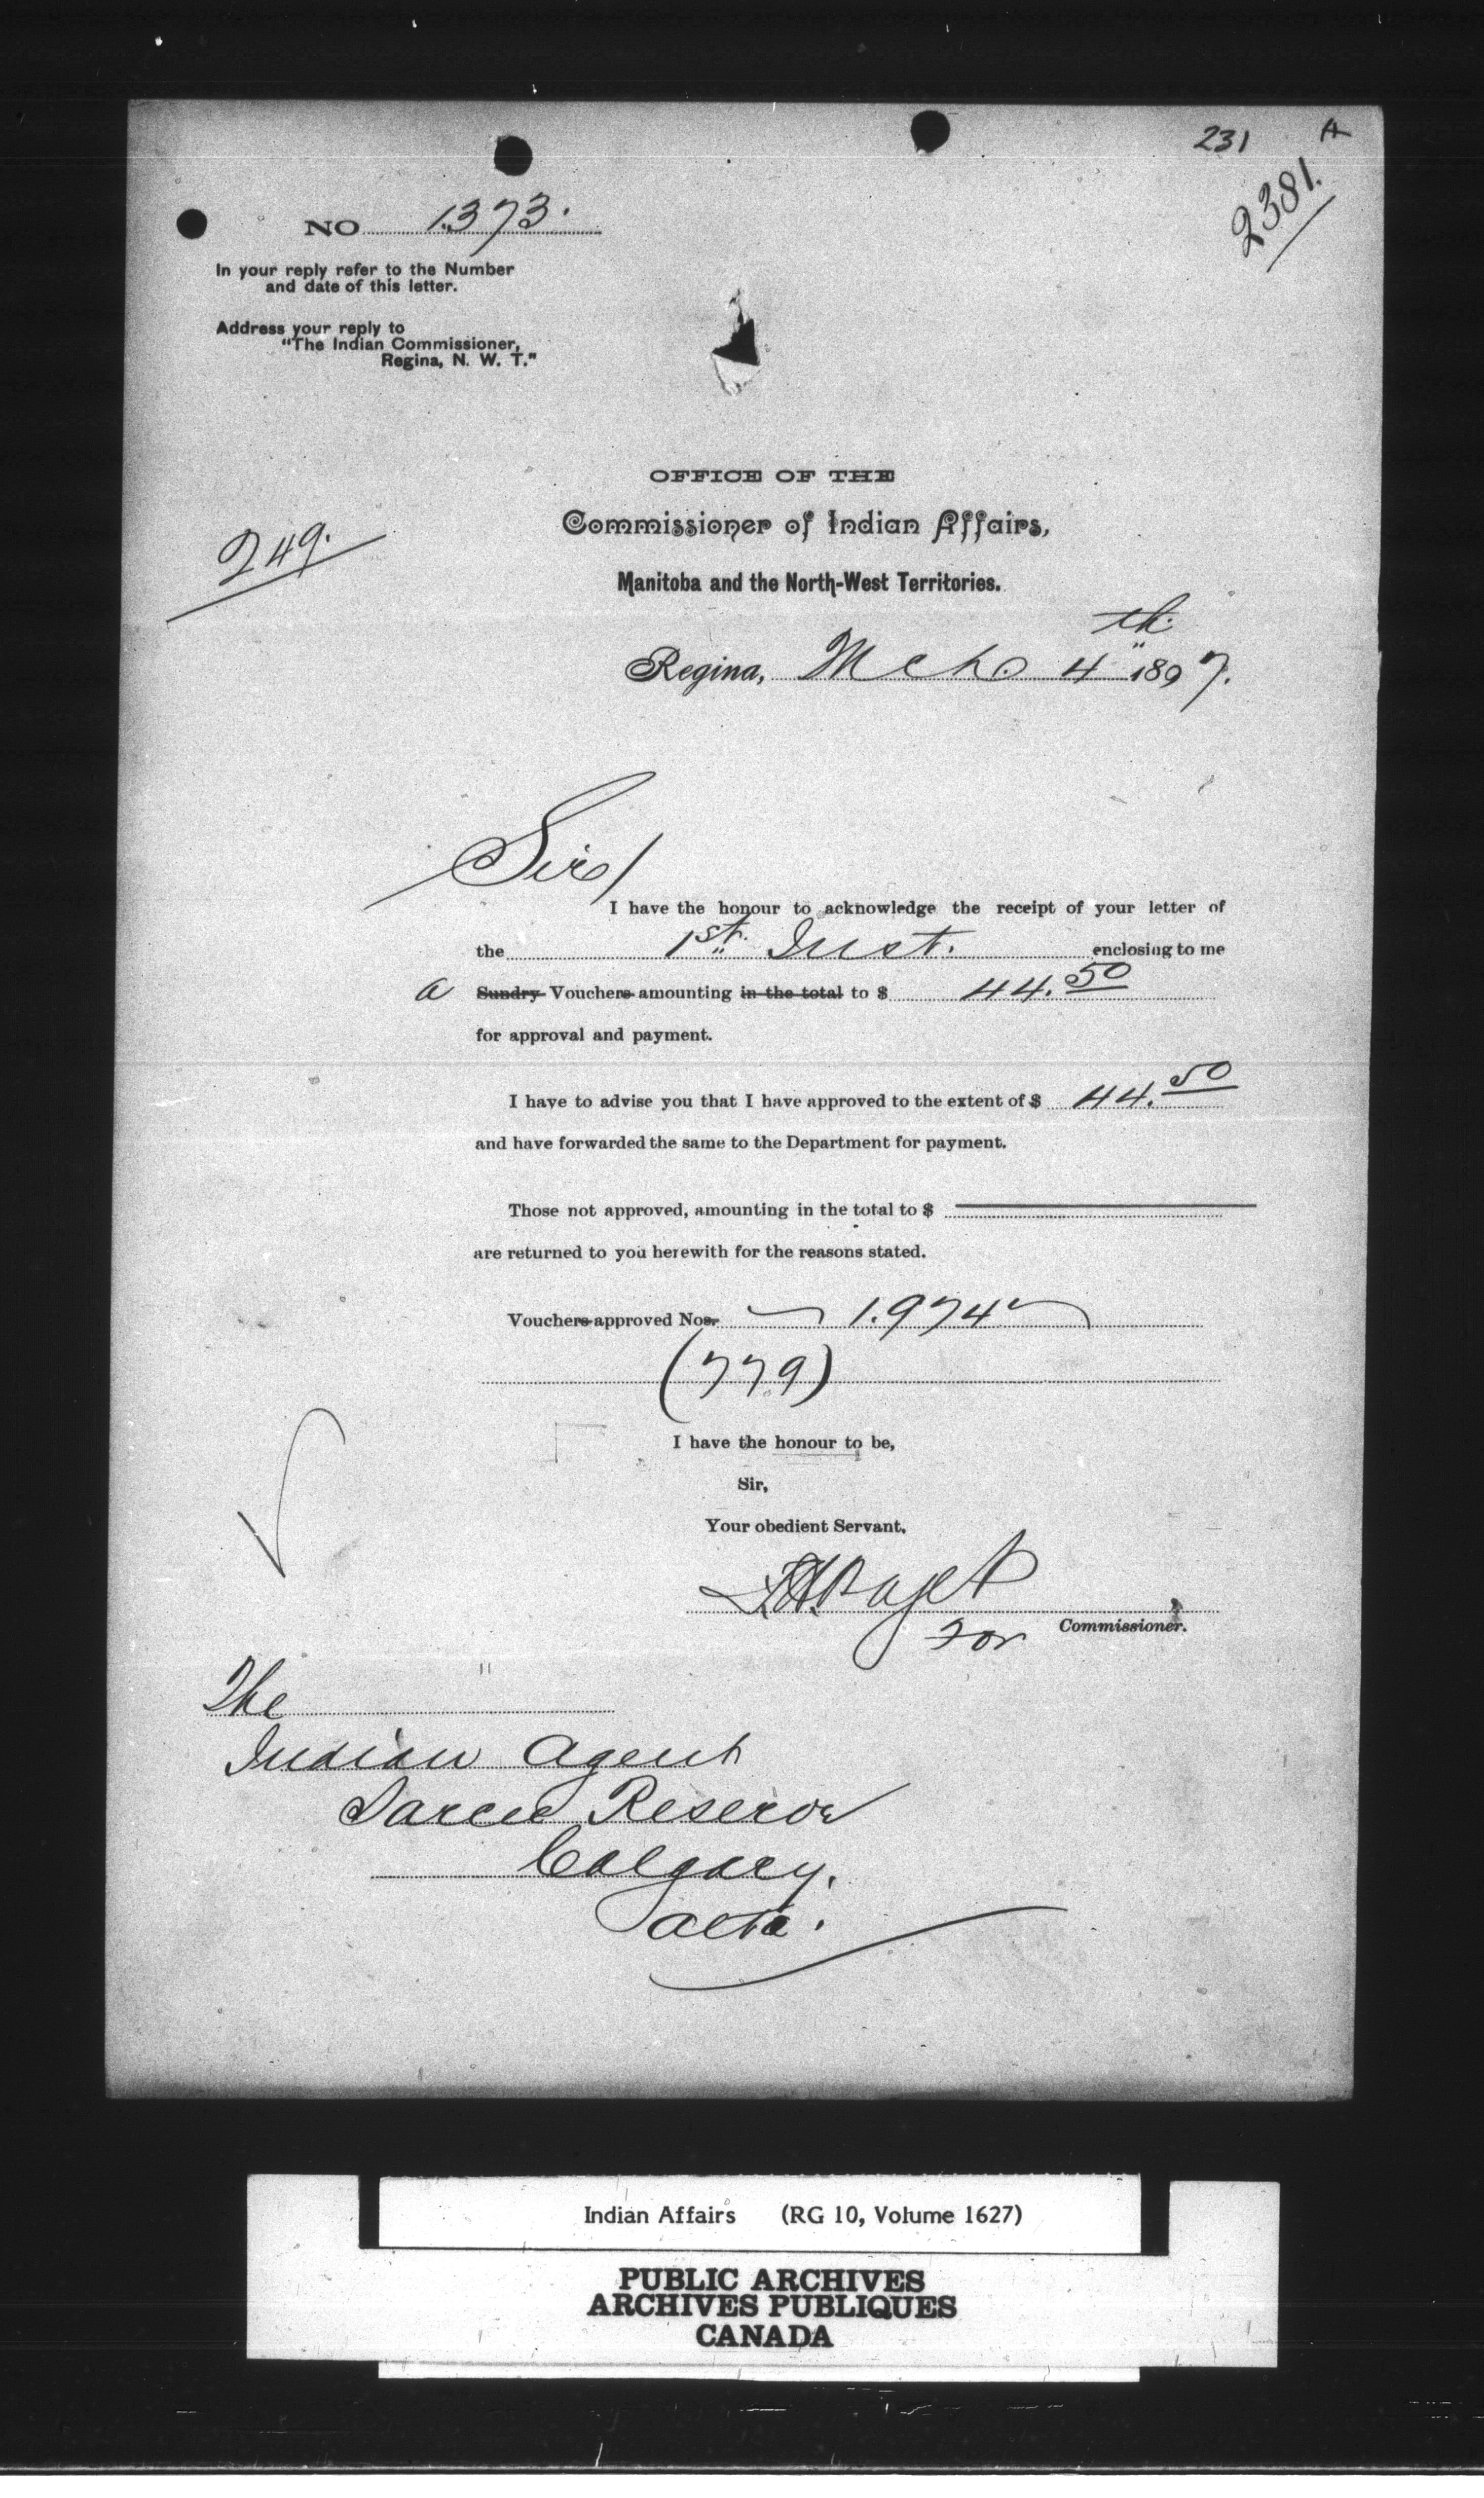 231 A
2381.
NO 1.373.
In your reply refer to the Number
and date of this letter.
Address your reply to
"The Indian Commissioner,
Regina, N. W. T."
OFFICE OF THE
Commissioner of Indian Affairs,
249.
Manitoba and the North-West Territories.
Regina, Mch. 4th 1897.
Sir/
I have the honour to acknowledge the receipt of your letter of
the 1st. Inst. enclosing to me
a Sundry Vouchers amounting in the total to $ 44.50
for approval and payment.
I have to advise you that I have approved to the extent of $ 44.50
and have forwarded the same to the Department for payment.
Those not approved, amounting in the total to $
are returned to you herewith for the reasons stated.
Vouchers approved Nos. 1.974
(779)
I have the honour to be,
Sir,
Your obedient Servant,
Paget
For Commissioner.
The
Indian Agent
Sarcee Reserve
Calgary.
Alta.
Indian Affairs (RG 10, Volume 1627)
PUBLIC ARCHIVES
ARCHIVES PUBLIQUES
CANADA